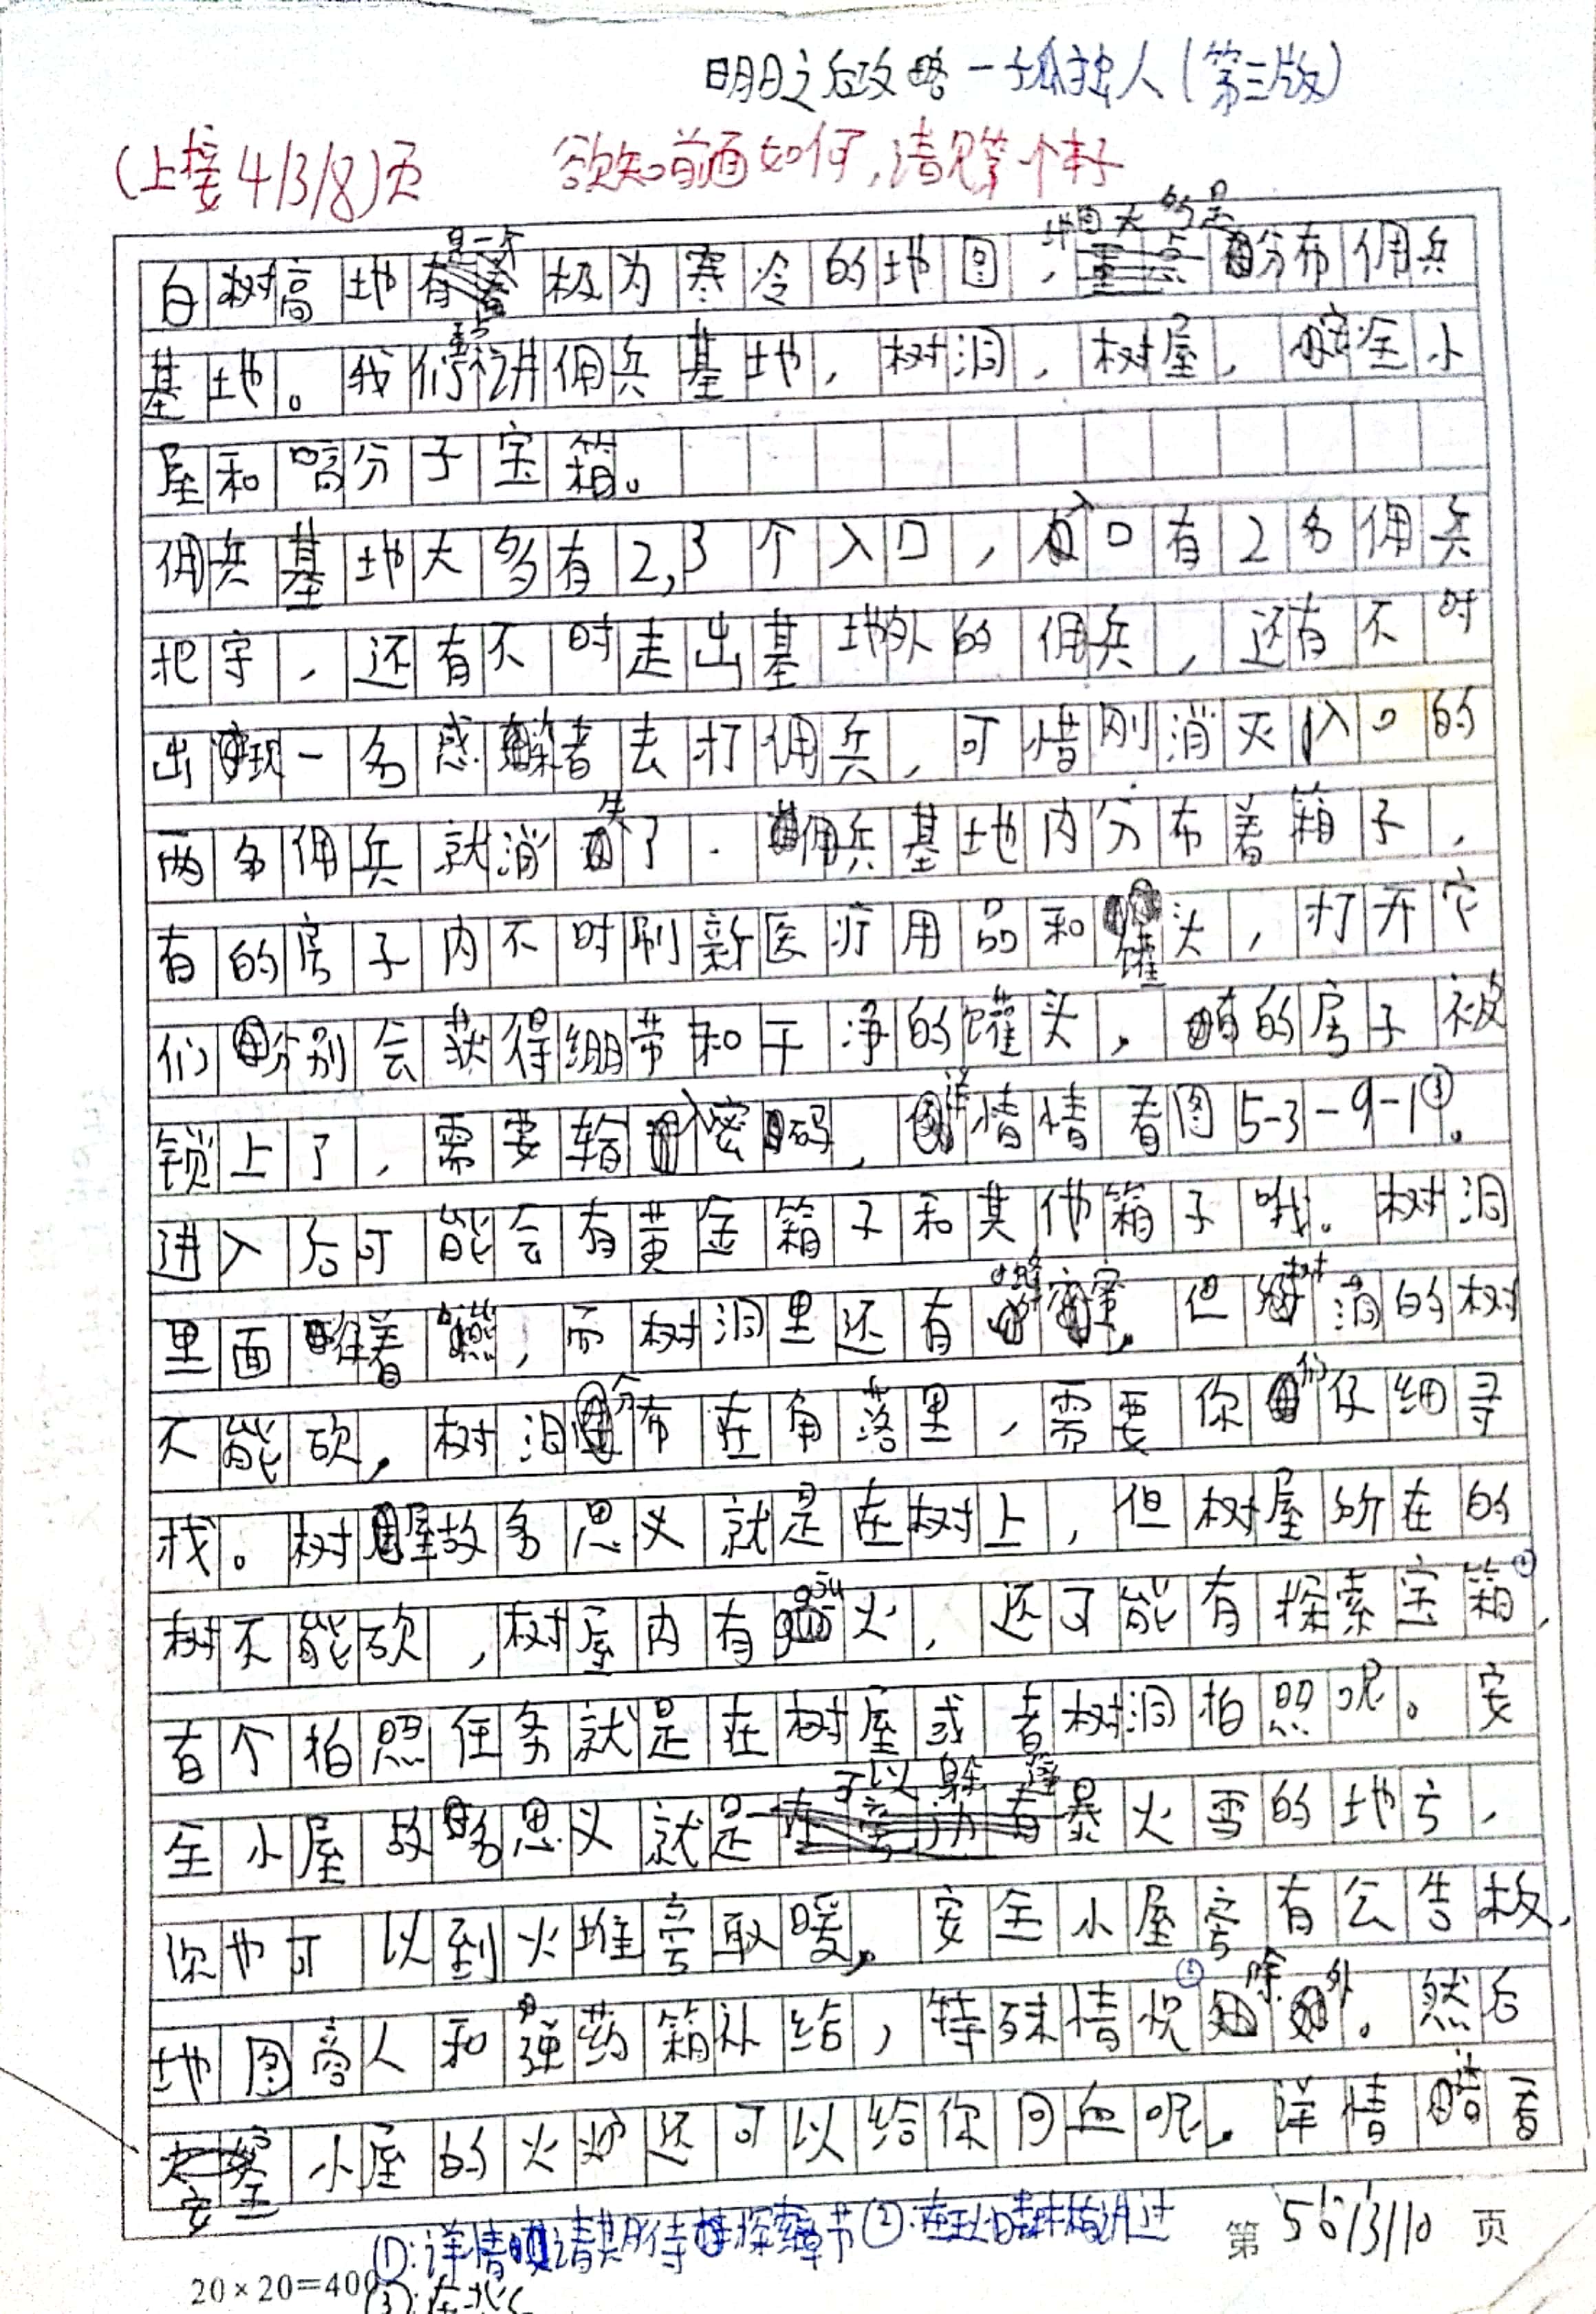 明日之后攻略一孤独人(第三版)
(上接4/3/8)页 欲知前面如何,请见第一个本子
白树高地是一个极为寒冷的地图,分布佣兵
基地。我们讲佣兵基地,树洞,树屋,安全小
屋和高分子宝箱。
佣兵基地大多有2,3个入口,入口有2名佣兵
把守,还有不时走出基地外的佣兵,还有不时
出现一名感染者去打佣兵,可惜刚消灭入口的
两名佣兵就消失了.佣兵基地内分布着箱子,
有的房子内不时刷新医疗用品和罐头,打开它
们分别会获得绷带和干净的罐头,有的房子被
锁上了,需要输入密码,详情请看图5-3-9-1③。
进入后可能会有黄金箱子和其他箱子哦。树洞
里面睡着熊,而树洞里还有蜂蜜,但树洞的树
不能砍,树洞分布在角落里,需要你们仔细寻
找。树屋故名思义就是在树上,但树屋所在的
树不能砍,树屋内有火,还可能有探索宝箱①,
有个拍照任务就是在树屋或者树洞拍照呢。安
全小屋故名思义就是可以躲避暴火雪的地方,
你也可以到火堆旁取暖,安全小屋旁有公告板,
地图商人和弹药箱补给,特殊情况除外。然后
安全小屋的火炉还可以给你回血呢,详情请看
①:详情请期待探索章节②:在
20×20=400
第 5 / 3 / 10 页